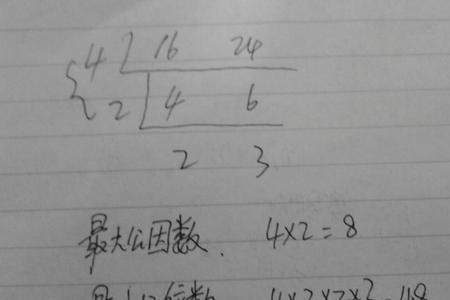 4 16 24
2 4 6
2 3
最大公因数. 4×2=8
最小公倍数 4×2×2×3=48